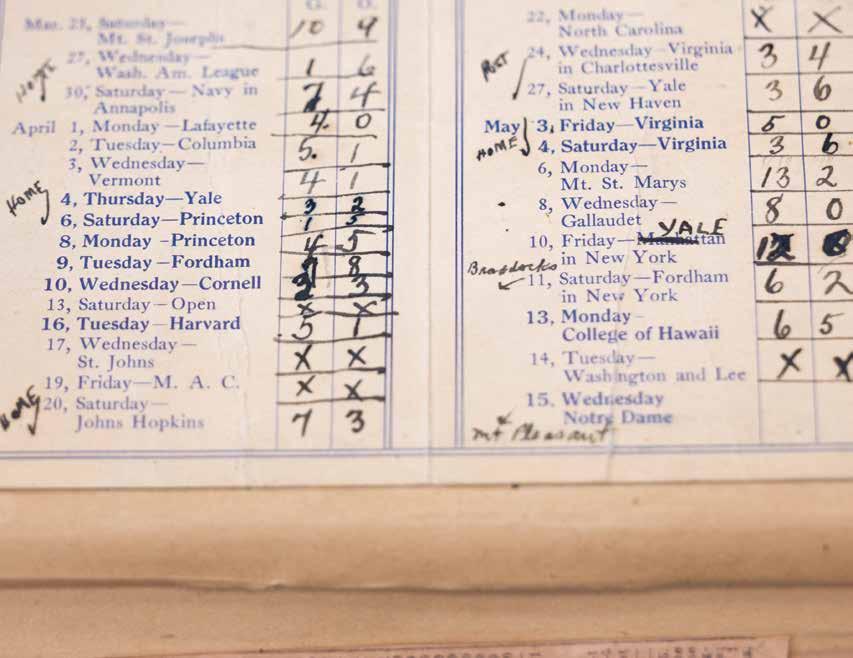 G. O.
Mar. 23, Saturday—
Mt. St. Josephs 10 9
27, Wednesday—
Wash. Am. League 1 6
30, Saturday—Navy in
Annapolis 7 4
April 1, Monday—Lafayette 4 0
2, Tuesday—Columbia 5 1
3, Wednesday—
Vermont 4 1
HOME
4, Thursday—Yale 3 2
6, Saturday—Princeton 1 5
8, Monday—Princeton 4 5
9, Tuesday—Fordham 8
10, Wednesday—Cornell 2 3
13, Saturday—Open X X
16, Tuesday—Harvard 5 1
17, Wednesday—
St. Johns X X
19, Friday—M. A. C. X X
HOME
20, Saturday—
Johns Hopkins 7 3
22, Monday—
North Carolina X X
24, Wednesday—Virginia
in Charlottesville 3 4
27, Saturday—Yale
in New Haven 3 6
May 3, Friday—Virginia 5 0
HOME
4, Saturday—Virginia 3 6
6, Monday—
Mt. St. Marys 13 2
8, Wednesday—
Gallaudet 8 0
YALE
10, Friday—Manhattan
in New York 12 8
Braddocks
11, Saturday—Fordham
in New York 6 2
13, Monday—
College of Hawaii 6 5
14, Tuesday—
Washington and Lee X X
15, Wednesday
Notre Dame
Mt Pleasant